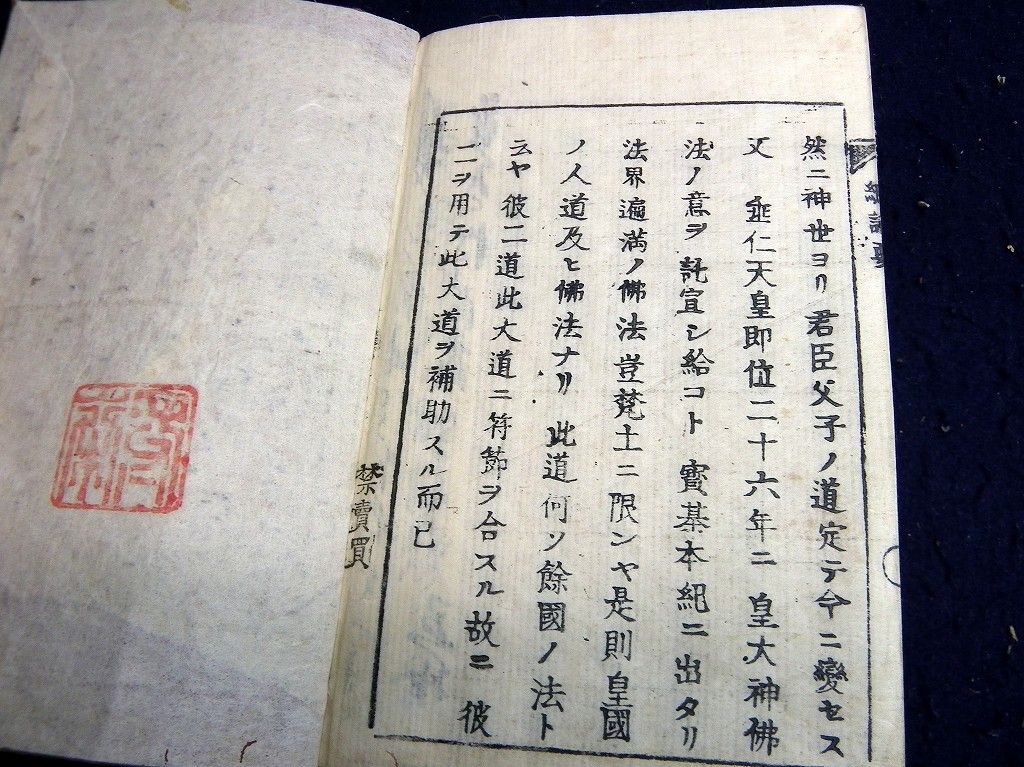 然ニ神世ヨリ君臣父子ノ道定テ今ニ變セス
又 垂仁天皇即位二十六年ニ 皇大神佛
法ノ意ヲ託宣シ給コト寶基本紀ニ出タリ
法界遍満ノ佛法豈梵土ニ限ンヤ是則皇國
ノ人道及ヒ佛法ナリ此道何ソ餘國ノ法ト
云ヤ彼二道此大道ニ符節ヲ合スル故ニ彼
二ヲ用テ此大道ヲ補助スル而已
禁賣買